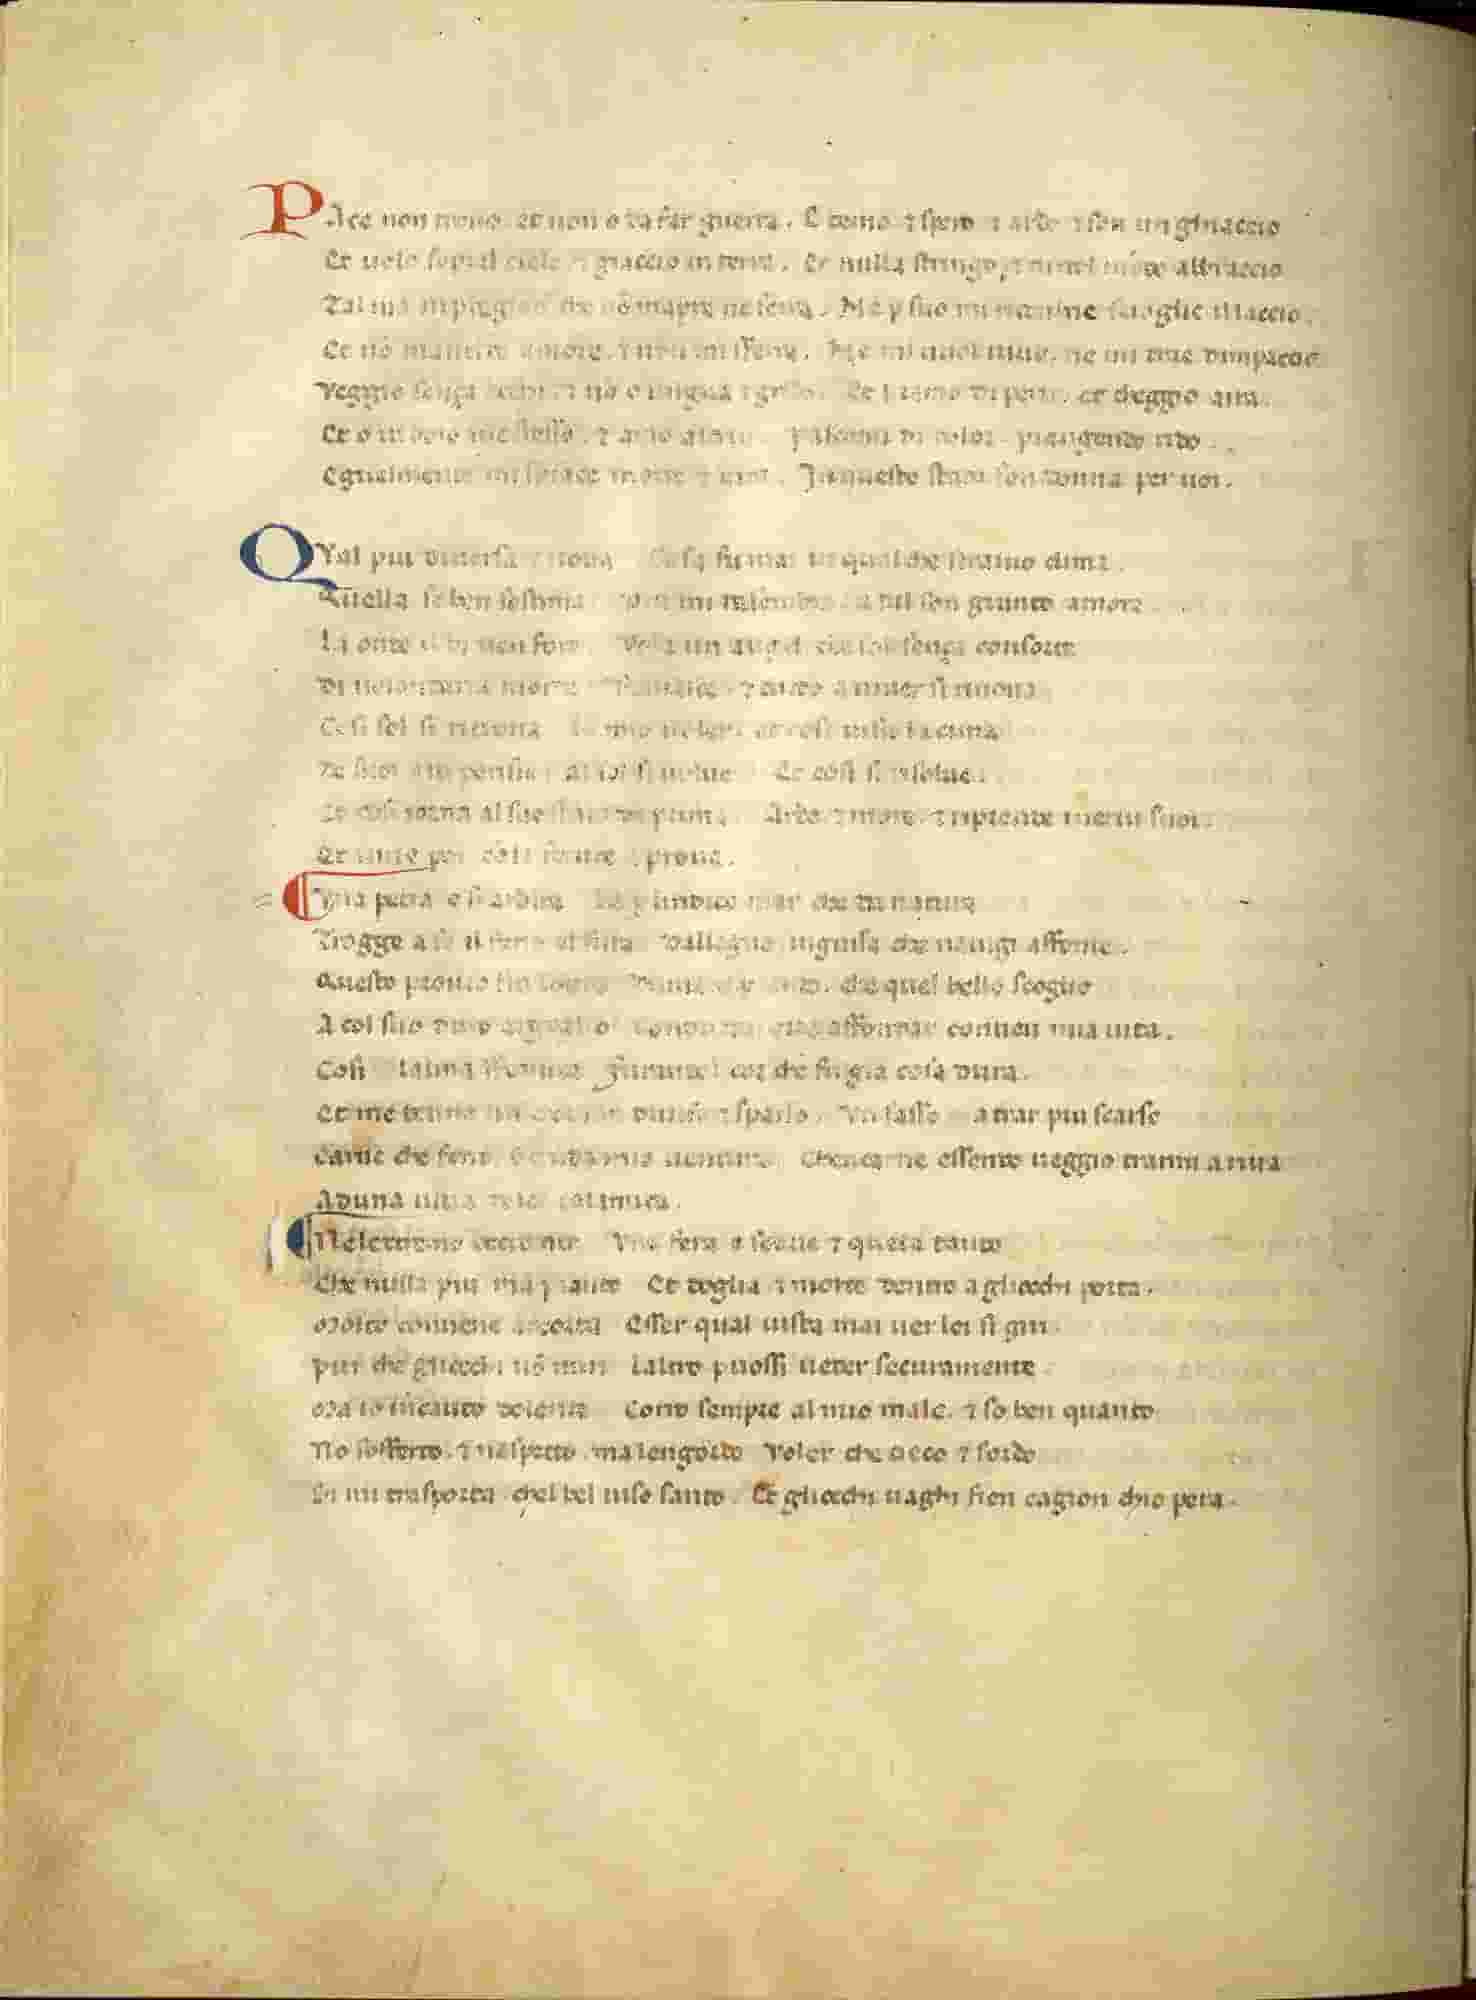 PAce non trouo et non o da far guerra. E temo ⁊ spero ⁊ ardo ⁊ son un ghiaccio
Et uolo sopral cielo ⁊ giaccio in terra. Et nulla stringo ⁊ tuttol mōdo abbraccio
Tal ma in pregion che nō mapre ne serra. Ne ꝑ suo mi ritiene ne scioglie il laccio.
Et nō mancide amore. ⁊ non mi sferra. Ne mi uuol uiuo. ne mi trae dimpaccio
Veggio sença occhi. ⁊ nō o lingua ⁊ grido. Et bramo di perir. et cheggio aita.
Et o in odio me stesso. ⁊ amo altrui. Pascomi di dolor. piangendo rido.
Egualmente mi spiace morte ⁊ uita. In questo stato son donna per uoi.
QVal piu diuersa ⁊ noua Cosa fu mai in qual che stranio clima.
Quella se ben sestima piu mi rasembra a tal son giunto amore
La onde il di uen fore Vola un augel che sol sença consorte
Di uolontaria morte Rinasce. ⁊ tutto a uiuer si rinoua
Cosi sol si ritroua Lo mio uoler. et cosi in su la cima
De suoi alti pensier al sol si uolue Et cosi si risolue.
Et cosi torna al suo stato di prima. Arde. ⁊ more. ⁊ riprende i nerui suoi.
Et uiue poi con la fenice a proua.
Vna petra e si ardita La ꝑ lindico mar che da natura
Tragge a se il ferro el fura Dal legno inguisa che nauigi affonde.
Questo prouo fra londe Damaro pianto. che quel bello scoglio
A col suo duro argoglio Condutta oue affondar conuen mia uita.
Cosi lalma sfornita Furandol cor che fu gia cosa dura.
Et me tenne un chor son diuiso ⁊ sparso. Vn sasso a trar piu scarso
Carne che ferro. O cruda mia uentura Chen carne essendo ueggio trarmi a riua
Aduna uiua dolce calamita.
Nelextremo occidente Vna fera e soaue ⁊ queta tanto
Che nulla piu. ma pianto Et doglia ⁊ morte dentro a gliocchi porta.
Molto conuene accorta Esser qual uista mai uer lei si giri
pur che gliocchi nō miri Laltro puossi ueder securamente
Ma io incauto dolente Corro sempre al mio male. ⁊ so ben quanto
No sofferto. ⁊ naspetto. ma lengordo Voler che cieco ⁊ sordo
Si mi trasporta. chel bel uiso santo. Et gliocchi uaghi fien cagion chio pera.